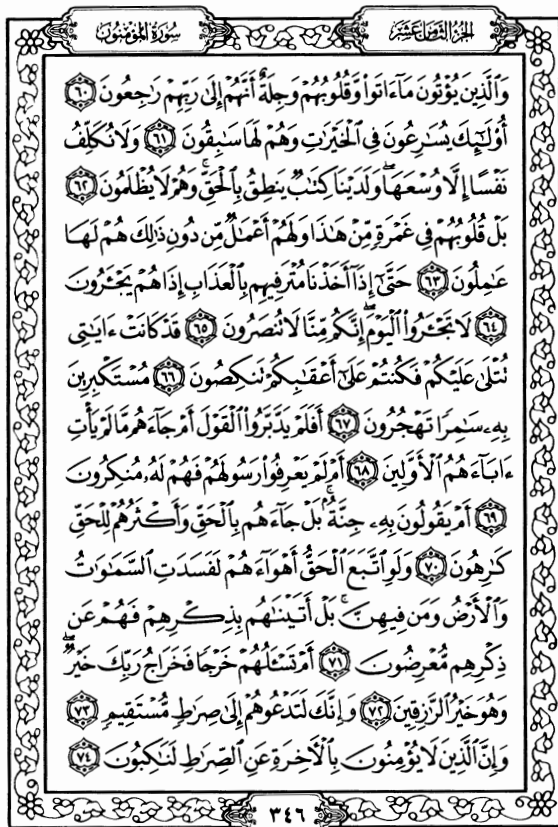 سُورَةُ المُؤْمِنُون
الجُزْءُ الثَّامِنُ عَشَرَ
وَٱلَّذِينَ يُؤْتُونَ مَآ ءَاتَوا۟ وَّقُلُوبُهُمْ وَجِلَةٌ أَنَّهُمْ إِلَىٰ رَبِّهِمْ رَٰجِعُونَ ٦٠
أُو۟لَٰٓئِكَ يُسَٰرِعُونَ فِى ٱلْخَيْرَٰتِ وَهُمْ لَهَا سَٰبِقُونَ ٦١ وَلَا نُكَلِّفُ
نَفْسًا إِلَّا وُسْعَهَاۖ وَلَدَيْنَا كِتَٰبٌ يَنطِقُ بِٱلْحَقِّۚ وَهُمْ لَا يُظْلَمُونَ ٦٢
بَلْ قُلُوبُهُمْ فِى غَمْرَةٍ مِّنْ هَٰذَا وَلَهُمْ أَعْمَٰلٌ مِّن دُونِ ذَٰلِكَ هُمْ لَهَا
عَٰمِلُونَ ٦٣ حَتَّىٰٓ إِذَآ أَخَذْنَا مُتْرَفِيهِم بِٱلْعَذَابِ إِذَا هُمْ يَجْـَٔرُونَ
٦٤ لَا تَجْـَٔرُوا۟ ٱلْيَوْمَۖ إِنَّكُم مِّنَّا لَا تُنصَرُونَ ٦٥ قَدْ كَانَتْ ءَايَٰتِى
تُتْلَىٰ عَلَيْكُمْ فَكُنتُمْ عَلَىٰٓ أَعْقَٰبِكُمْ تَنكِصُونَ ٦٦ مُسْتَكْبِرِينَ
بِهِۦ سَٰمِرًا تَهْجُرُونَ ٦٧ أَفَلَمْ يَدَّبَّرُوا۟ ٱلْقَوْلَ أَمْ جَآءَهُم مَّا لَمْ يَأْتِ
ءَابَآءَهُمُ ٱلْأَوَّلِينَ ٦٨ أَمْ لَمْ يَعْرِفُوا۟ رَسُولَهُمْ فَهُمْ لَهُۥ مُنكِرُونَ
٦٩ أَمْ يَقُولُونَ بِهِۦ جِنَّةٌۢۚ بَلْ جَآءَهُم بِٱلْحَقِّ وَأَكْثَرُهُمْ لِلْحَقِّ
كَٰرِهُونَ ٧٠ وَلَوِ ٱتَّبَعَ ٱلْحَقُّ أَهْوَآءَهُمْ لَفَسَدَتِ ٱلسَّمَٰوَٰتُ
وَٱلْأَرْضُ وَمَن فِيهِنَّۚ بَلْ أَتَيْنَٰهُم بِذِكْرِهِمْ فَهُمْ عَن
ذِكْرِهِم مُّعْرِضُونَ ٧١ أَمْ تَسْـَٔلُهُمْ خَرْجًا فَخَرَاجُ رَبِّكَ خَيْرٌۖ
وَهُوَ خَيْرُ ٱلرَّٰزِقِينَ ٧٢ وَإِنَّكَ لَتَدْعُوهُمْ إِلَىٰ صِرَٰطٍ مُّسْتَقِيمٍ ٧٣
وَإِنَّ ٱلَّذِينَ لَا يُؤْمِنُونَ بِٱلْأَخِرَةِ عَنِ ٱلصِّرَٰطِ لَنَٰكِبُونَ ٧٤
٣٤٦